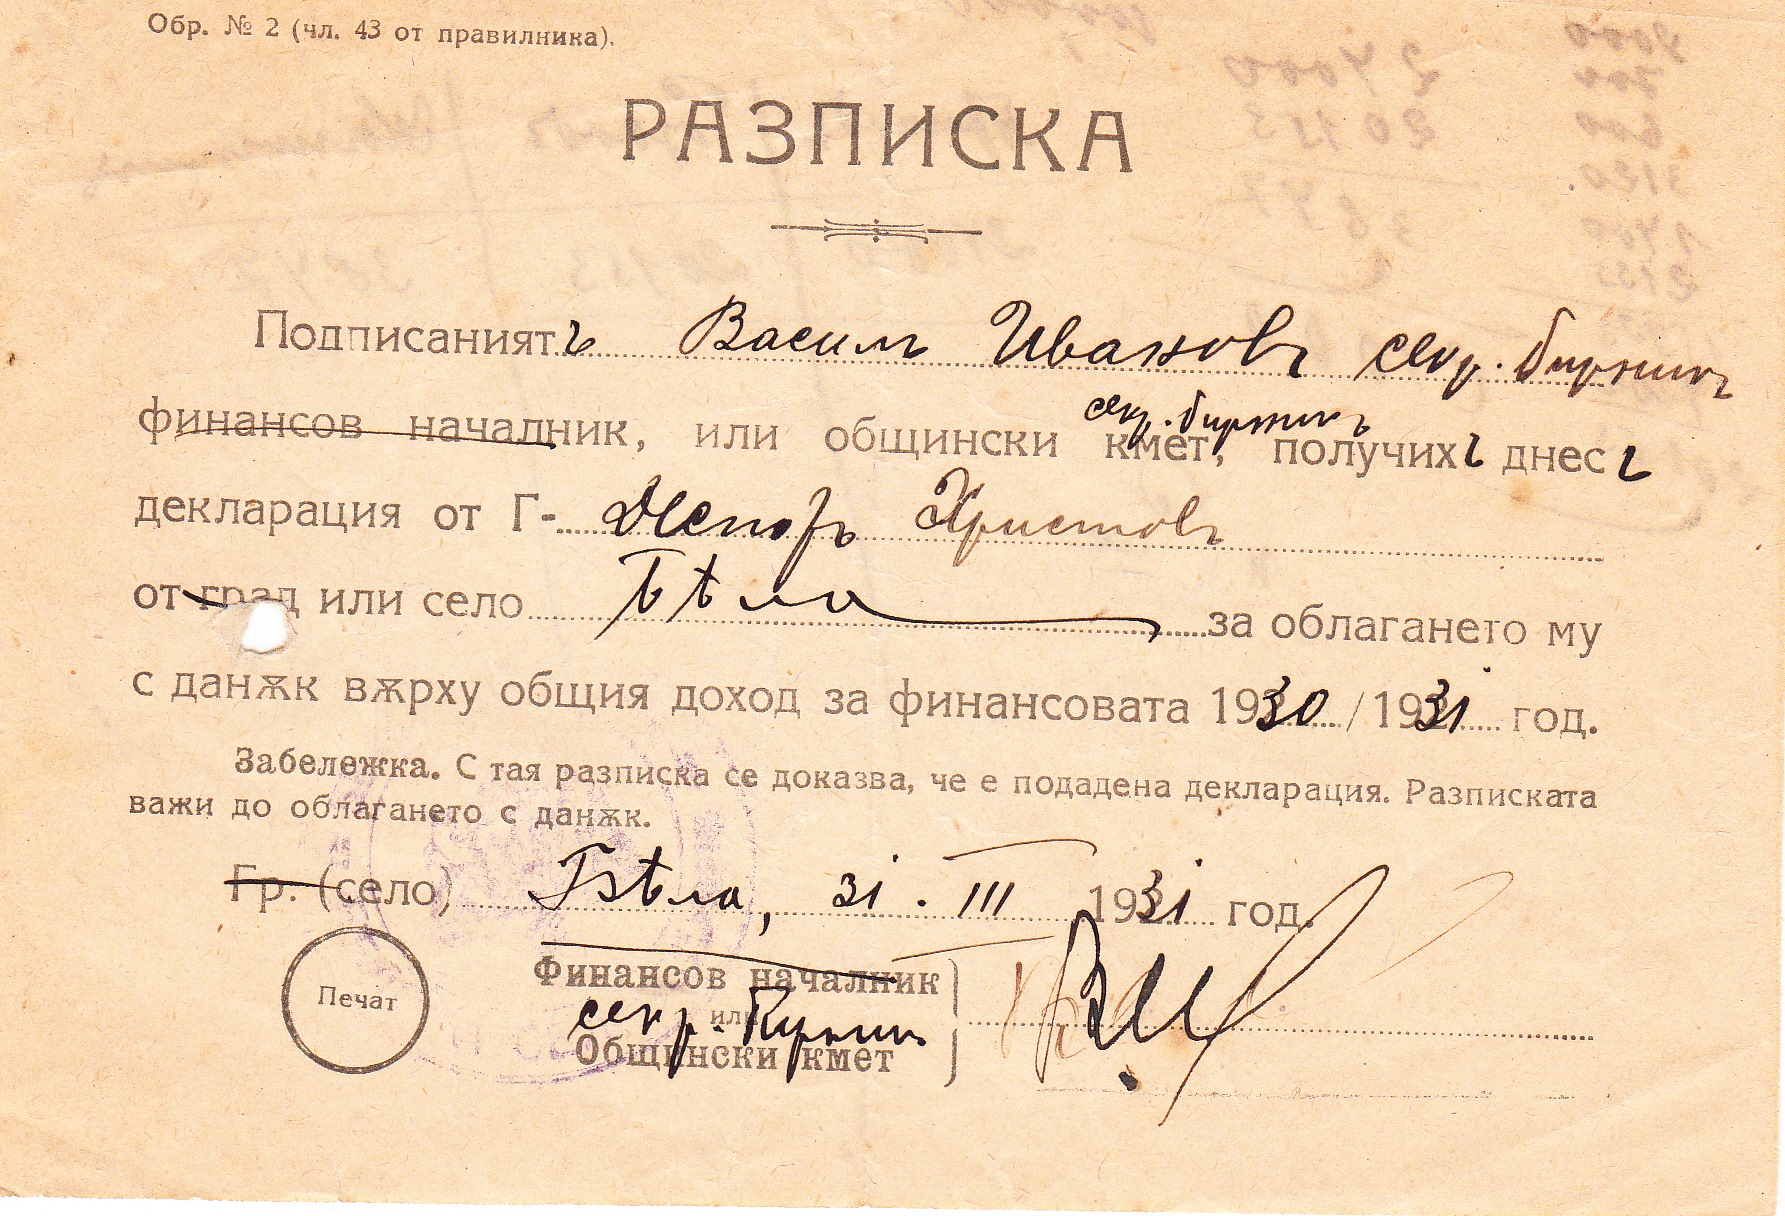 Обр. № 2 (чл. 43 от правилника).
РАЗПИСКА
Подписаният ъ Василъ Ивановъ секр. бирникъ
секр. бирникъ
финансов началник, или общински кмет, получих ъ днес ъ
декларация от Г- Христовъ
от град или село Бѣла за облагането му
с данѫк вѫрху общия доход за финансовата 1930 / 1931 год.
Забележка. С тая разписка се доказва, че е подадена декларация. Разписката
важи до облагането с данѫк.
Гр. (село) Бѣла, 31 . III 1931 год.
Финансов началник
Печат
или
секр. Бирникъ
Общински кмет